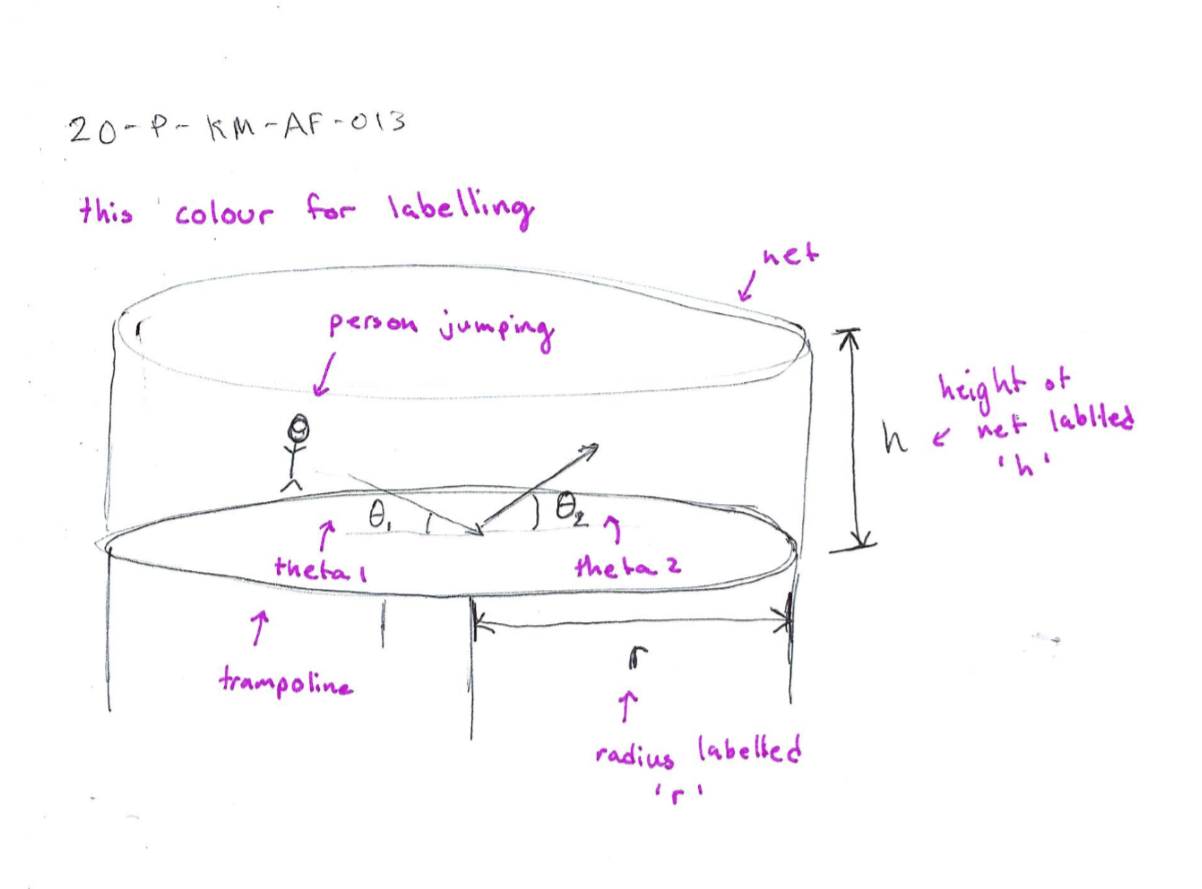 20-P-KM-AF-013
this colour for labelling
net
person jumping
height of
h net lablled
'h'
θ₁ θ₂
theta 1 theta 2
r
trampoline
radius labelled
'r'